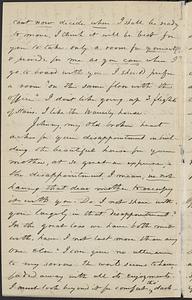 cant now decide when I shall be ready
to move. I think it will be best for
you to take only a room for yourself
& provide for me as you can when I
go to board with you. I should prefer
a room on the same floor with the
office. I dont like going up 3 flights
of stairs. I like the Waverly house.
Johnny, my old broken heart
aches for your disappointment in build-
ing the beautiful house for your
mother, at so great an expense &
the disappointment I mean, in not
having that dear mother to occupy
it with you. Do I not share with
you largely in that disappointment?
In the great loss we have both met
with, have I not lost more than any
one else? I loved you no allusion
to my sorrow. The world seems to have
faded away with all its enjoyments.
I must look beyond it for comfort, & dark